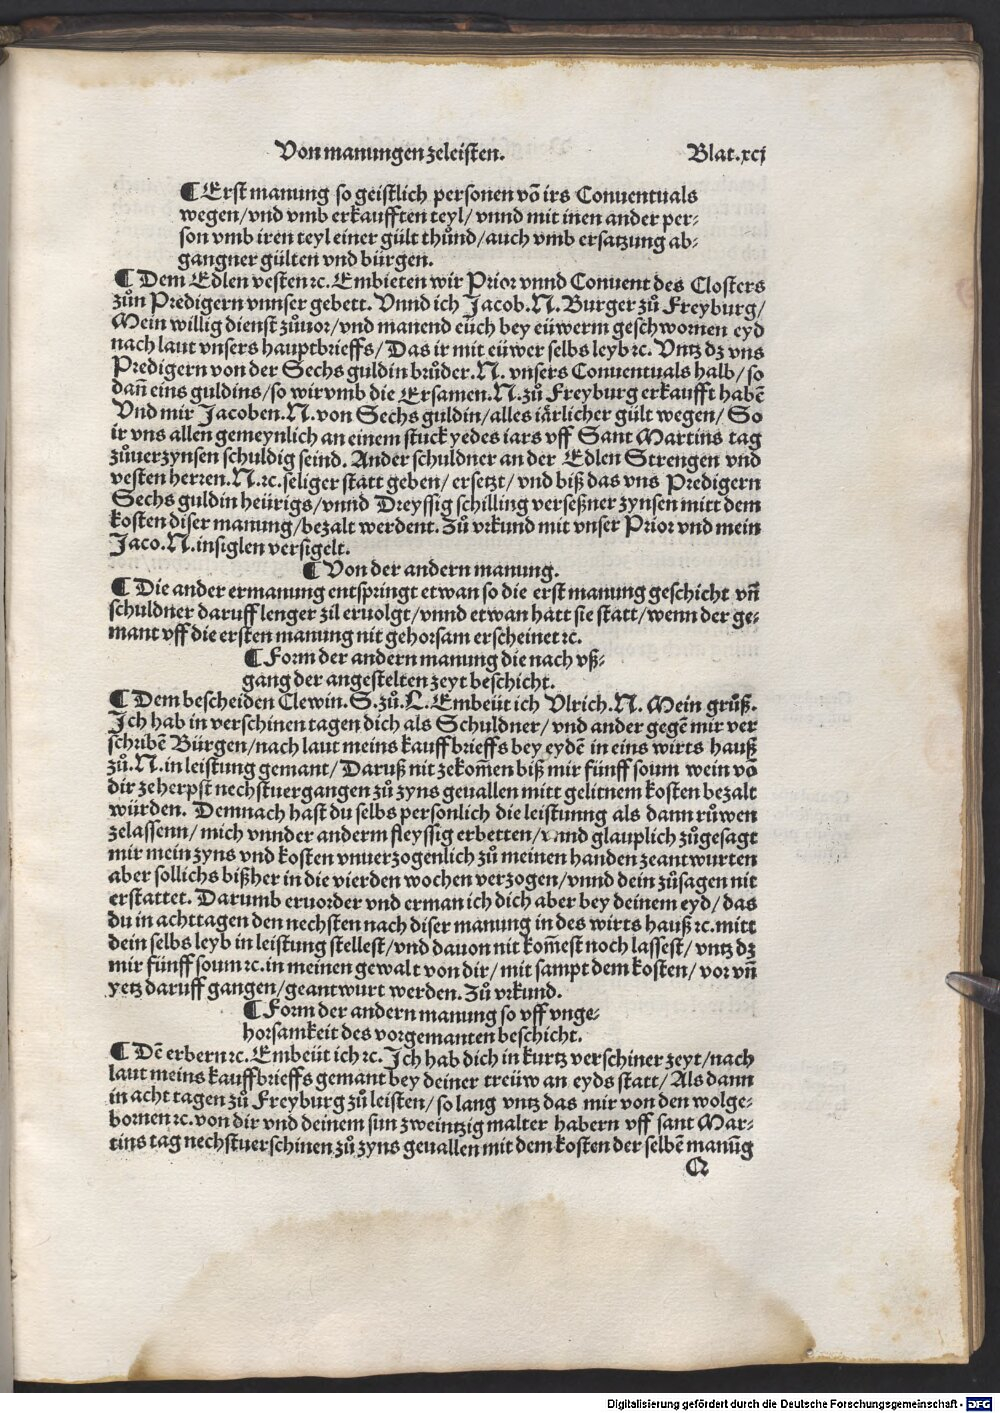 Von manungen zeleisten. Blat.xcj
¶ Erst manung so geistlich personen võ irs Conuentuals
wegen/vnd vmb erkaufften teyl/vnnd mit inen ander per⸗
son vmb iren teyl einer gült thůnd/auch vmb ersatzung ab⸗
gangner gülten vnd bürgen.
¶ Dem Edlen vesten ꝛc. Embieten wir Prior vnnd Conuent des Closters
zůn Predigern vnnser gebett. Vnnd ich Jacob.N.Burger zů Freyburg/
Mein willig dienst zůuor/vnd manend eüch bey eüwerm geschwornen eyd
nach laut vnsers hauptbrieffs/Das ir mit eüwer selbs leyb ꝛc. Vntz dz vns
Predigern von der Sechs guldin brůder.N. vnsers Conuentuals halb/so
dañ eins guldins/so wir vmb die Ersamen.N.zů Freyburg erkaufft habẽ
Vnd mir Jacoben.N.von Sechs guldin/alles iärlicher gült wegen/So
ir vns allen gemeynlich an einem stuck yedes iars vff Sant Martins tag
zůuerzynsen schuldig seind. Ander schuldner an der Edlen Strengen vnd
vesten herren.N.ꝛc.seliger statt geben/ersetzt/vnd biß das vns Predigern
Sechs guldin heürigs/vnnd Dreyssig schilling verseßner zynsen mitt dem
kosten diser manung/bezalt werdent. Zů vrkund mit vnser Prior vnd mein
Jaco.N.insiglen versigelt.
¶ Von der andern manung.
¶ Die ander ermanung entspringt etwan so die erst manung geschicht vñ
schuldner daruff lenger zil eruolgt/vnnd etwan hatt sie statt/wenn der ge⸗
mant vff die ersten manung nit gehorsam erscheinet ꝛc.
¶ Form der andern manung die nach vß⸗
gang der angestelten zeyt beschicht.
¶ Dem bescheiden Clewin.S.zů.L.Embeüt ich Vlrich.N.Mein grůß.
Jch hab in verschinen tagen dich als Schuldner/vnd ander gegẽ mir ver
schribẽ Bürgen/nach laut meins kauffbrieffs bey eydẽ in eins wirts hauß
zů.N.in leistung gemant/Daruß nit zekom̃en biß mir fünff soum wein võ
dir zeherpst nechstuergangen zů zyns geuallen mitt gelitnem kosten bezalt
würden. Demnach hast du selbs persönlich die leistunng als dann růwen
zelassenn/mich vnnder anderm fleyssig erbetten/vnnd glauplich zůgesagt
mir mein zyns vnd kosten vnuerzogenlich zů meinen handen zeantwurten
aber sollichs bißher in die vierden wochen verzogen/vnnd dein zůsagen nit
erstattet. Darumb eruorder vnd erman ich dich aber bey deinem eyd/das
du in achttagen den nechsten nach diser manung in des wirts hauß ꝛc.mitt
dein selbs leyb in leistung stellest/vnd dauon nit kom̃est noch lassest/vntz dz
mir fünff soum ꝛc.in meinen gewalt von dir/mit sampt dem kosten/vor vñ
yetz daruff gangen/geantwurt werden. Zů vrkund.
¶ Form der andern manung so vff vnge⸗
horsamkeit des vorgemanten beschicht.
¶ Dẽ erbern ꝛc. Embeüt ich ꝛc. Jch hab dich in kurtz verschiner zeyt/nach
laut meins kauffbrieffs gemant bey deiner treüw an eyds statt/Als dann
in acht tagen zů Freyburg zů leisten/so lang vntz das mir von den wolge⸗
bornen ꝛc.von dir vnd deinem sun zweintzig malter habern vff sant Mar⸗
tins tag nechstuerschinen zů zyns geuallen mit dem kosten der selbẽ manũg
Q
Digitalisierung gefördert durch die Deutsche Forschungsgemeinschaft - DFG